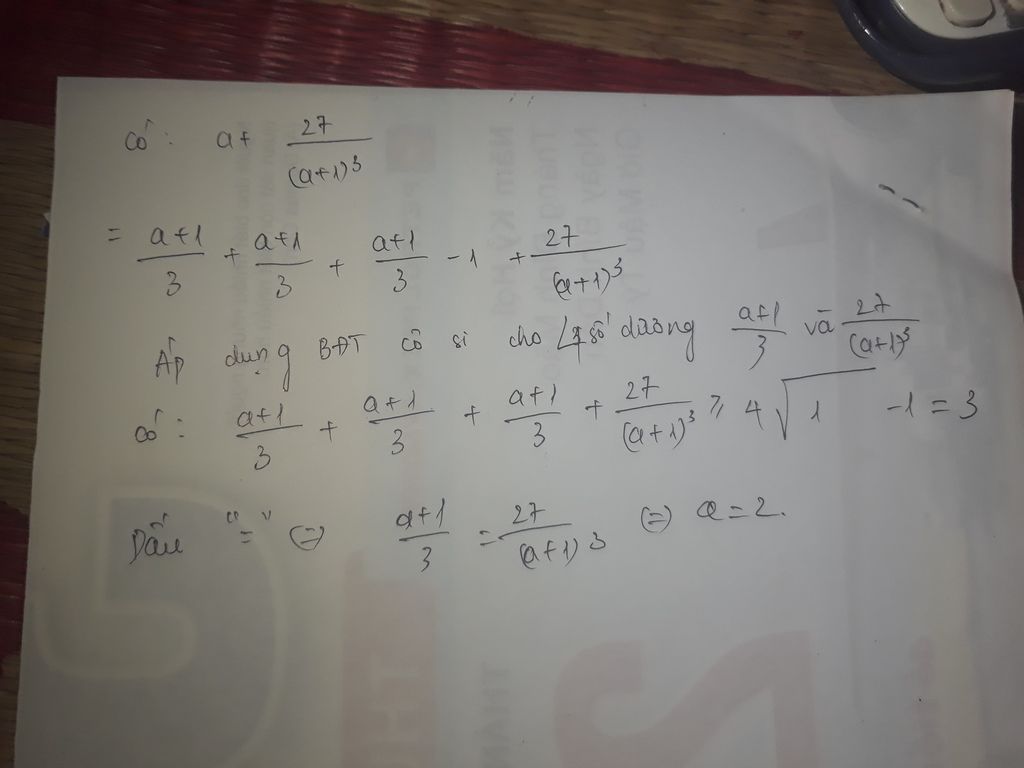 Có: a + 27/(a+1)³
= (a+1)/3 + (a+1)/3 + (a+1)/3 - 1 + 27/(a+1)³
Áp dụng BĐT cô si cho 4 số dương (a+1)/3 và 27/(a+1)³
có: (a+1)/3 + (a+1)/3 + (a+1)/3 + 27/(a+1)³ ≥ 4√1 - 1 = 3
Dấu "=" ⇔ (a+1)/3 = 27/(a+1)³ ⇔ a = 2.